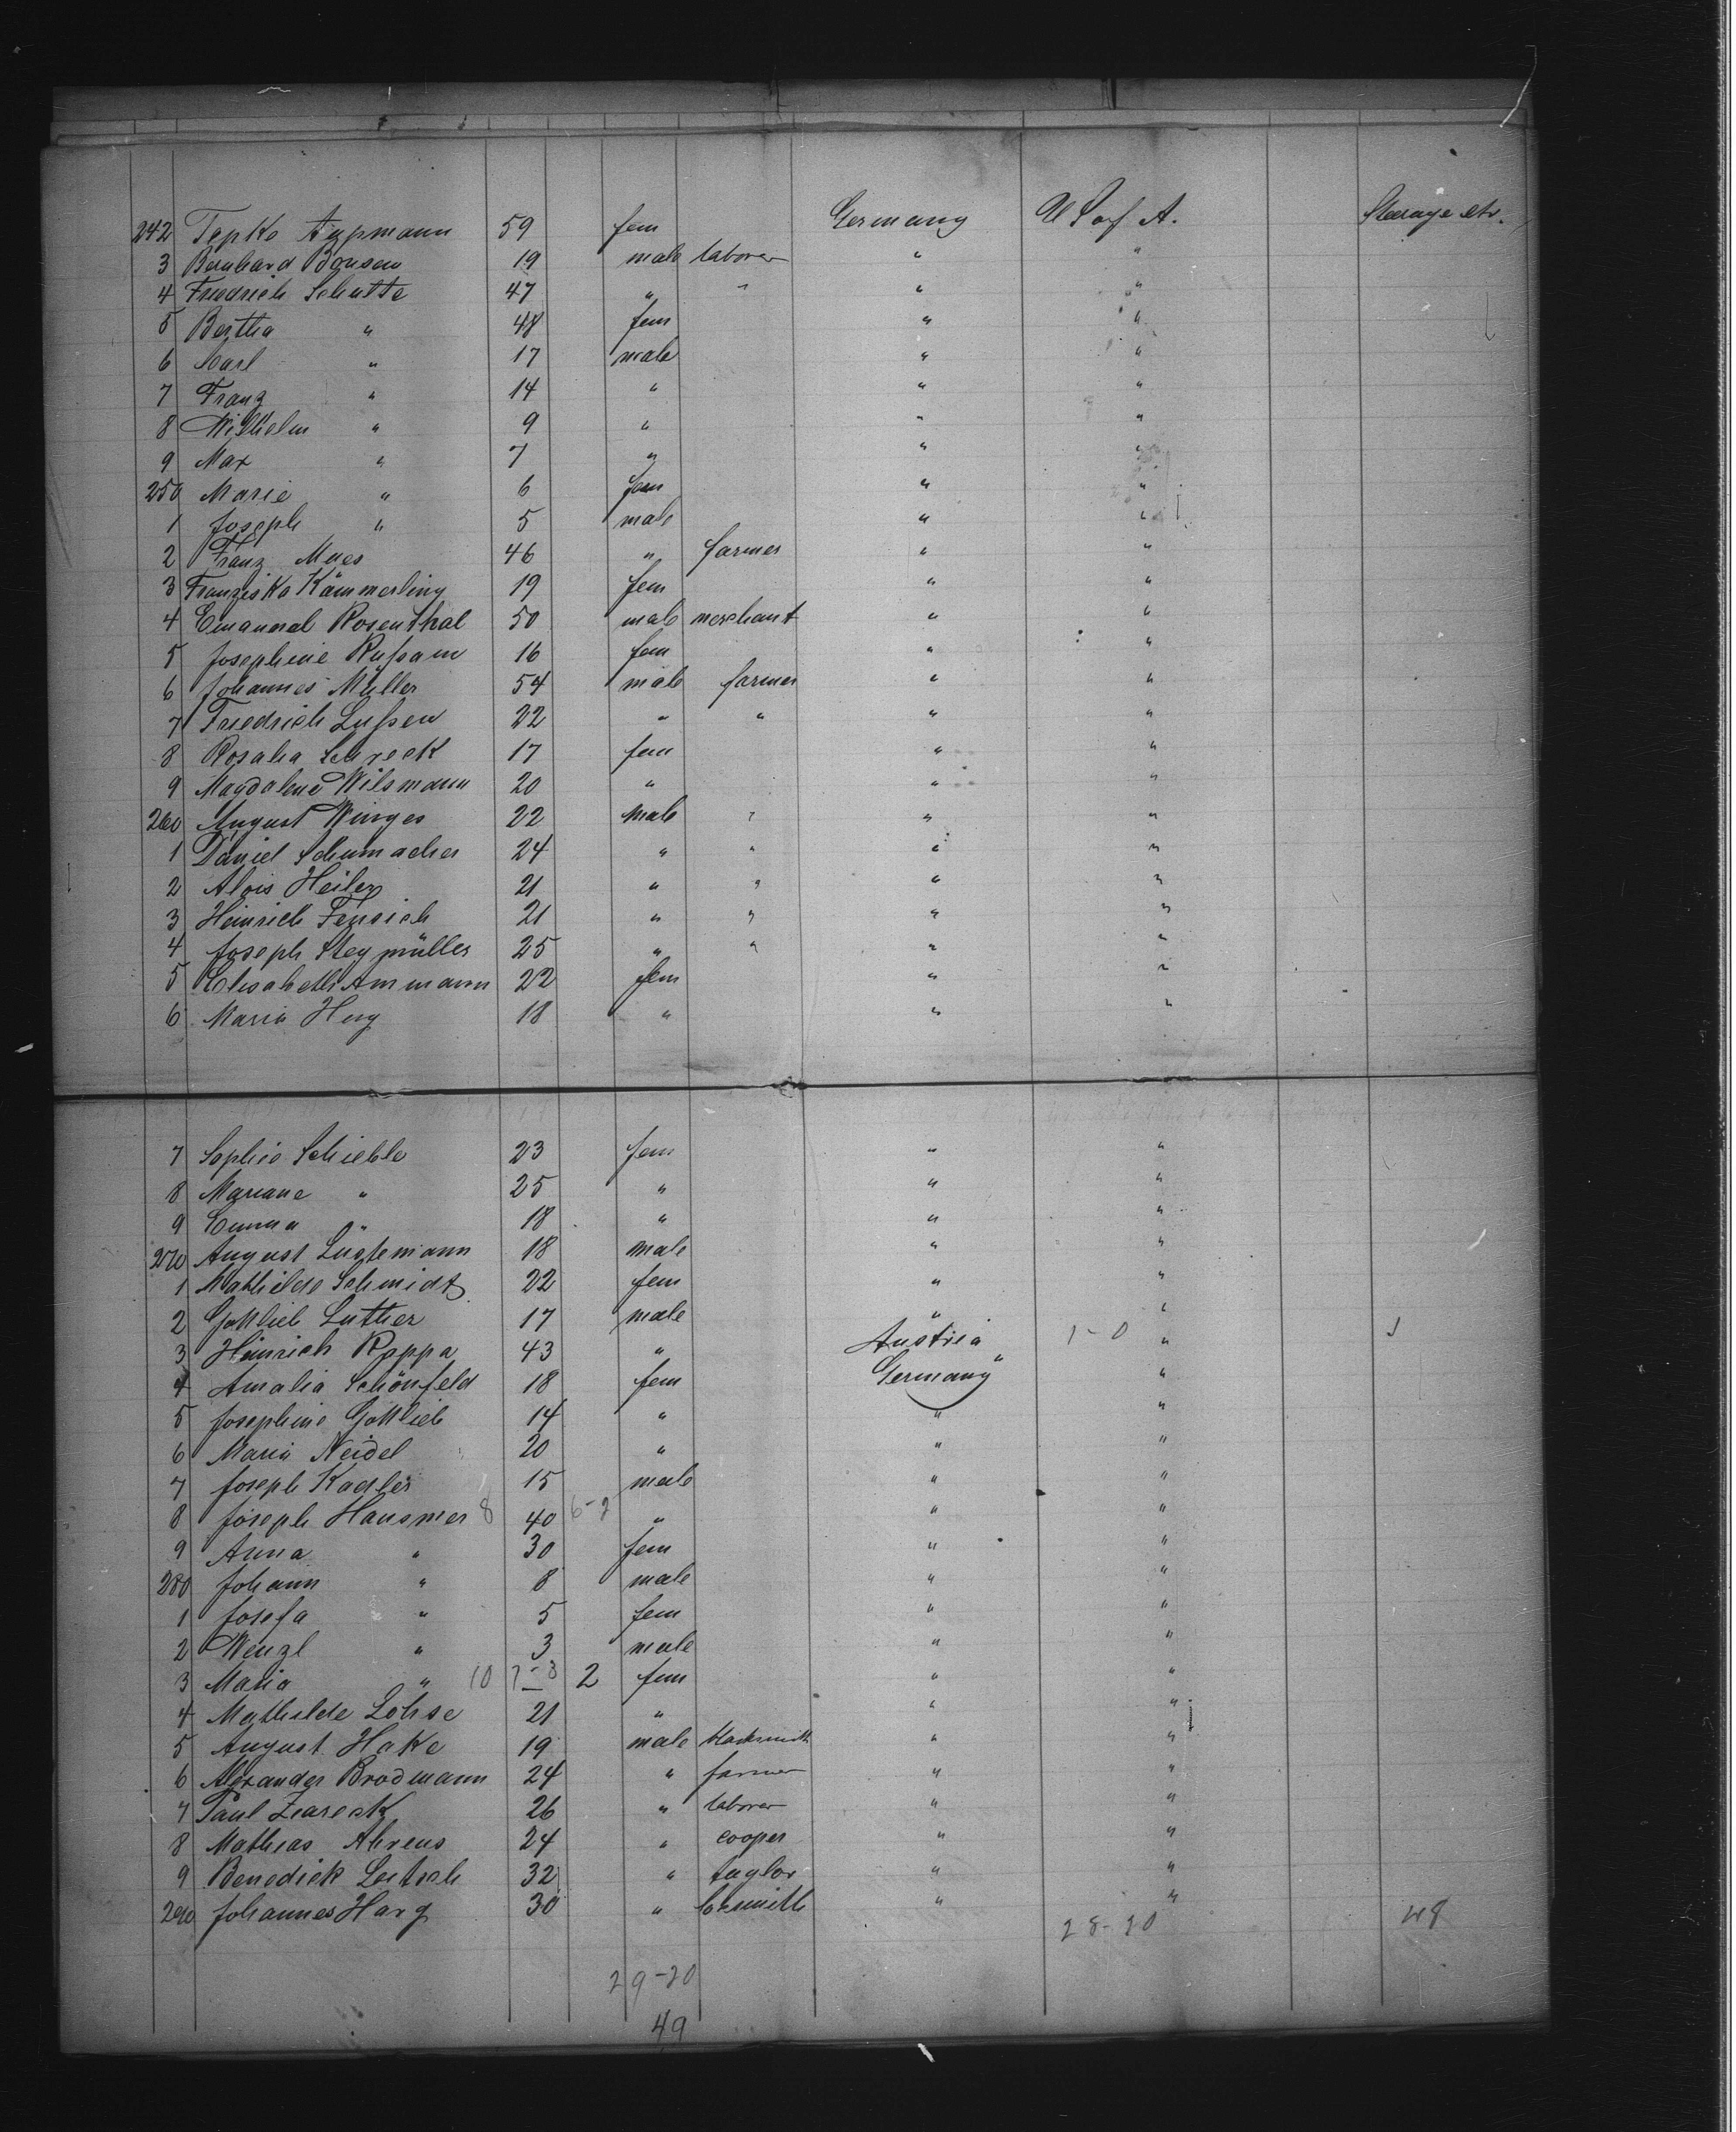 242 Topko Aypmann 59 fem Germany U S of A. Steerage etc.
3 Bernhard Bonsen 19 male laborer " "
4 Friedrich Schutte 47 " " " "
5 Bertha " 48 fem " "
6 Carl " 17 male " "
7 Franz " 14 " " "
8 Wilhelm " 9 " " "
9 Max " 7 " " "
250 Marie " 6 fem " "
1 Joseph " 5 male " "
2 Franz Maes 46 " farmer " "
3 Franziska Kämmerling 19 fem " "
4 Emanuel Rosenthal 50 male merchant " "
5 Josephine Rußam 16 fem " "
6 Johannes Müller 54 male farmer " "
7 Friedrich Lußen 22 " " " "
8 Rosalia Schreck 17 fem " "
9 Magdalene Wilsmann 20 " " "
260 August Winges 22 male " " "
1 Daniel Schumacher 24 " " " "
2 Alois Heiler 21 " " " "
3 Heinrich Fensich 21 " " " "
4 Joseph Stegmüller 25 " " " "
5 Elisabeth Ammann 22 fem " "
6 Maria Hug 18 " " "
7 Sophie Schieble 23 fem " "
8 Mariane " 25 " " "
9 Emma " 18 " " "
270 August Lustemann 18 male " "
1 Mathilde Schmidt 22 fem " "
2 Gottlieb Luther 17 male " "
3 Heinrich Roppa 43 " Austria 1-0 "
4 Amalia Schönfeld 18 fem Germany " "
5 Josephine Gottlieb 14 " " "
6 Maria Neidel 20 " " "
7 Joseph Kadler 15 male " "
8 Joseph Hausmer 8 40 6-2 " " "
9 Anna " 30 fem " "
280 Johann " 8 male " "
1 Josefa " 5 fem " "
2 Wenzl " 3 male " "
3 Maria " 10 7-3 2 fem " "
4 Mathilde Lohse 21 " " "
5 August Hake 19 male blacksmith " "
6 Alexander Brodmann 24 " farmer " "
7 Paul Zeareck 26 " laborer " "
8 Mathias Ahrens 24 " cooper " "
9 Benedick Leitsch 32 " taylor " "
290 Johannes Harg 30 " locsmith " "
28-20 48
29-20
49